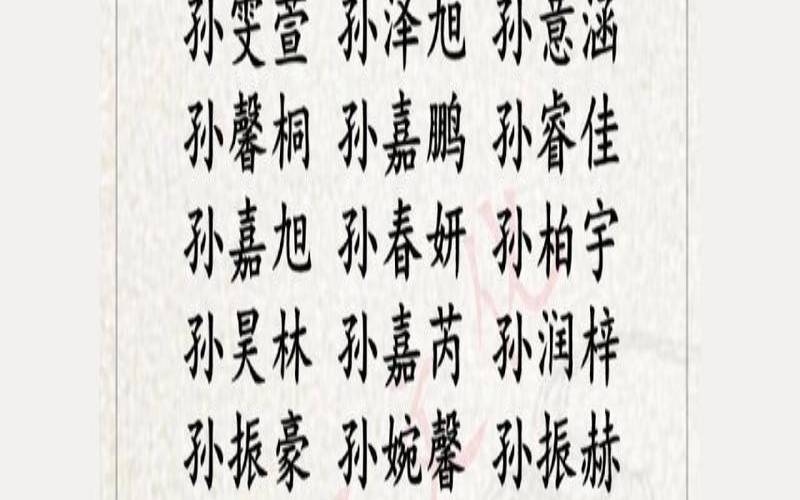 孙雯萱 孙泽旭 孙意涵
孙馨桐 孙嘉鹏 孙睿佳
孙嘉旭 孙春妍 孙柏宇
孙昊林 孙嘉芮 孙润梓
孙振豪 孙婉馨 孙振赫